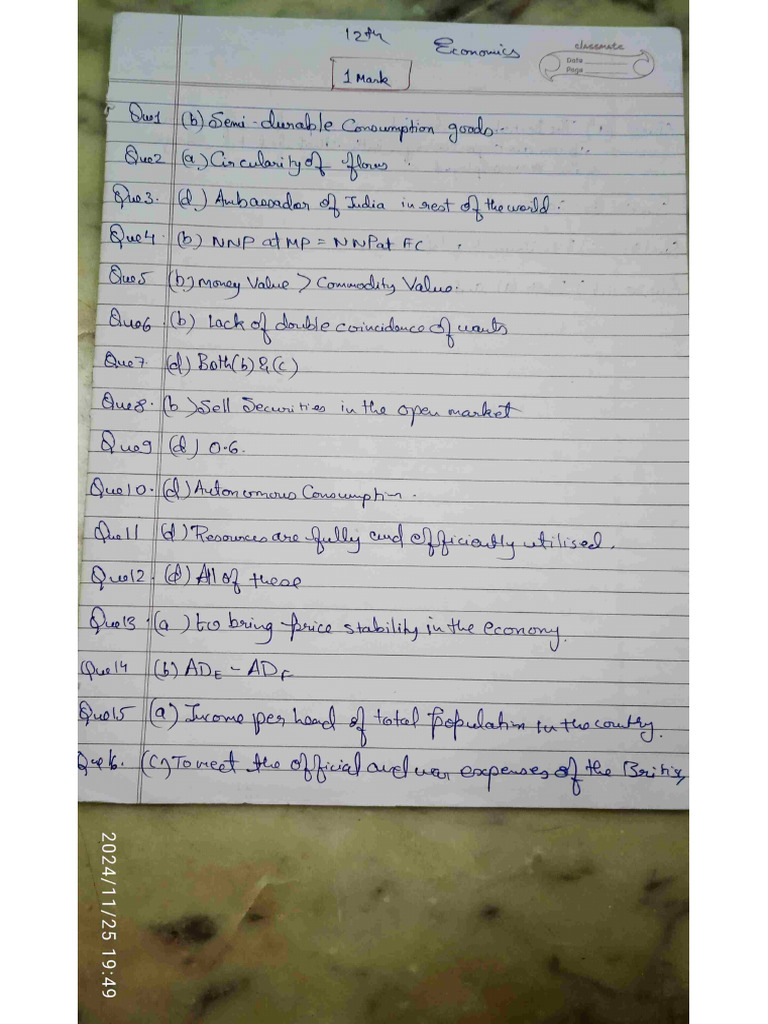 12th Economics
classmate
Date
Page
1 Mark
Que1 (b) Semi-durable Consumption goods.
Que2 (a) Circularity of flows.
Que3. (d) Ambassador of India in rest of the world.
Que4. (b) NNP at MP = NNP at FC
Que5 (b) Money Value > Commodity Value.
Que6. (b) Lack of double coincidence of wants
Que7 (d) Both (b) & (c)
Que8. (b) Sell Securities in the open market
Que9 (d) 0.6.
Que10. (d) Autonomous Consumption.
Que11 (d) Resources are fully and efficiently utilised.
Que12. (d) All of these
Que13. (a) to bring price stability in the economy.
Que14 (b) ADE - ADF
Que15 (a) Income per head of total population in the country.
Que16. (c) To meet the official and war expenses of the British
2024/11/25 19:49